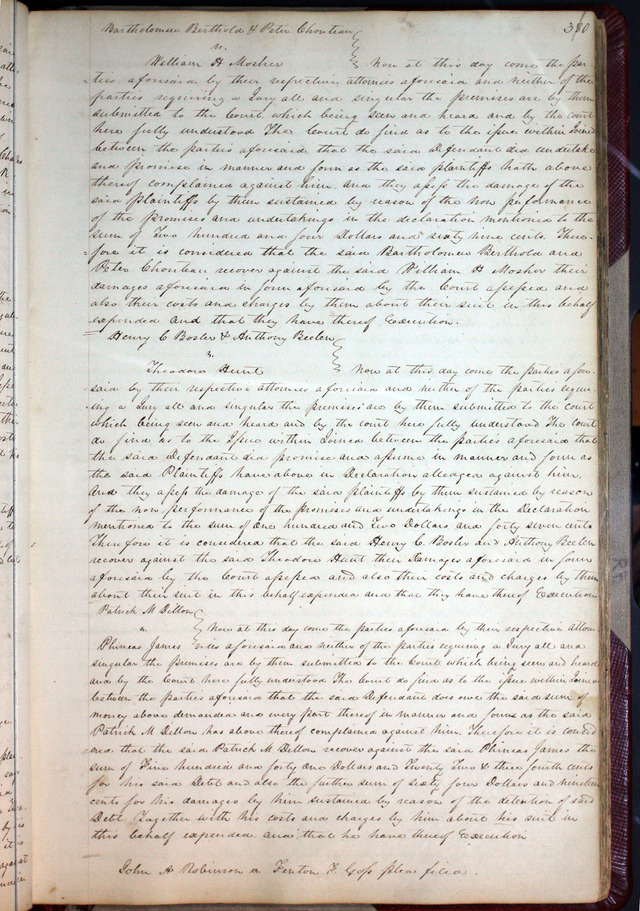 380
Bartholomew Berthold & Peter Chouteau
vs.
William H Mosher } Now at this day comes the par-
-ties aforesaid by their respective attornies aforesaid and neither of the
parties requiring a Jury all and singular the premises are by them
submitted to the Court which being seen and heard and by the court
here fully understood The Court do find as to the issue within Joined
between the parties aforesaid that the said Defendant did undertake
and promise in manner and form as the said plaintiffs hath above
thereof complained against him. And they assess the damage of the
said plaintiffs by them sustained by reason of the non performance
of the promises and undertakings in the declaration mentioned to the
sum of Two hundred and four Dollars and sixty nine cents. There-
-fore it is considered that the said Bartholomew Berthold and
Peter Chouteau recover against the said William H Mosher their
damages aforesaid in form aforesaid by the Court assessed and
also their costs and charges by them about their suit in this behalf
expended and that they have thereof Execution.
Henry C Bosler & Anthony Beelen
vs.
Theodore Hunt } Now at this day come the parties afore
said by their respective attornies aforesaid and neither of the parties requir-
-ing a Jury all and singular the premises are by them submitted to the court
which being seen and heard and by the court here fully understood The Court
do find as to the Issue within Joined between the parties aforesaid that
the said Defendant did promise and assume in manner and form as
the said Plaintiffs have above in Declaration alledged against him.
And they assess the damage of the said plaintiffs by them sustained by reason
of the non performance of the promises and undertakings in the Declaration
mentioned to the sum of One hundred and Two Dollars and forty seven cents
Therefore it is considered that the said Henry C. Bosler and Anthony Beelen
recover against the said Theodore Hunt their Damages aforesaid in form
aforesaid by the Court assessed and also their costs and charges by them
about their suit in this behalf expended and that they have thereof Execution
Patrick M Dillon
vs. } Now at this day come the parties aforesaid by their respective attor-
Phineas James -nies aforesaid and neither of the parties requiring a Jury all and
singular the premises are by them submitted to the Court which being seen and heard
and by the Court here fully understood The Court do find as to the issue within Joined
between the parties aforesaid that the said Defendant does owe the said sum of
money above demanded and every part thereof in manner and form as the said
Patrick M Dillon has above thereof complained against him. Therefore it is consid-
ered that the said Patrick M Dillon recover against the said Phineas James the
sum of Five hundred and forty One Dollars and Twenty Two & three fourth cents
for his said Debt and also the further sum of sixty four Dollars and nineteen
cents for his damages by him sustained by reason of the detention of said
Debt Together with his costs and charges by him about his suit in
this behalf expended and that he have thereof Execution
John A Robinson vs Fenton F. Goss pleas filed.